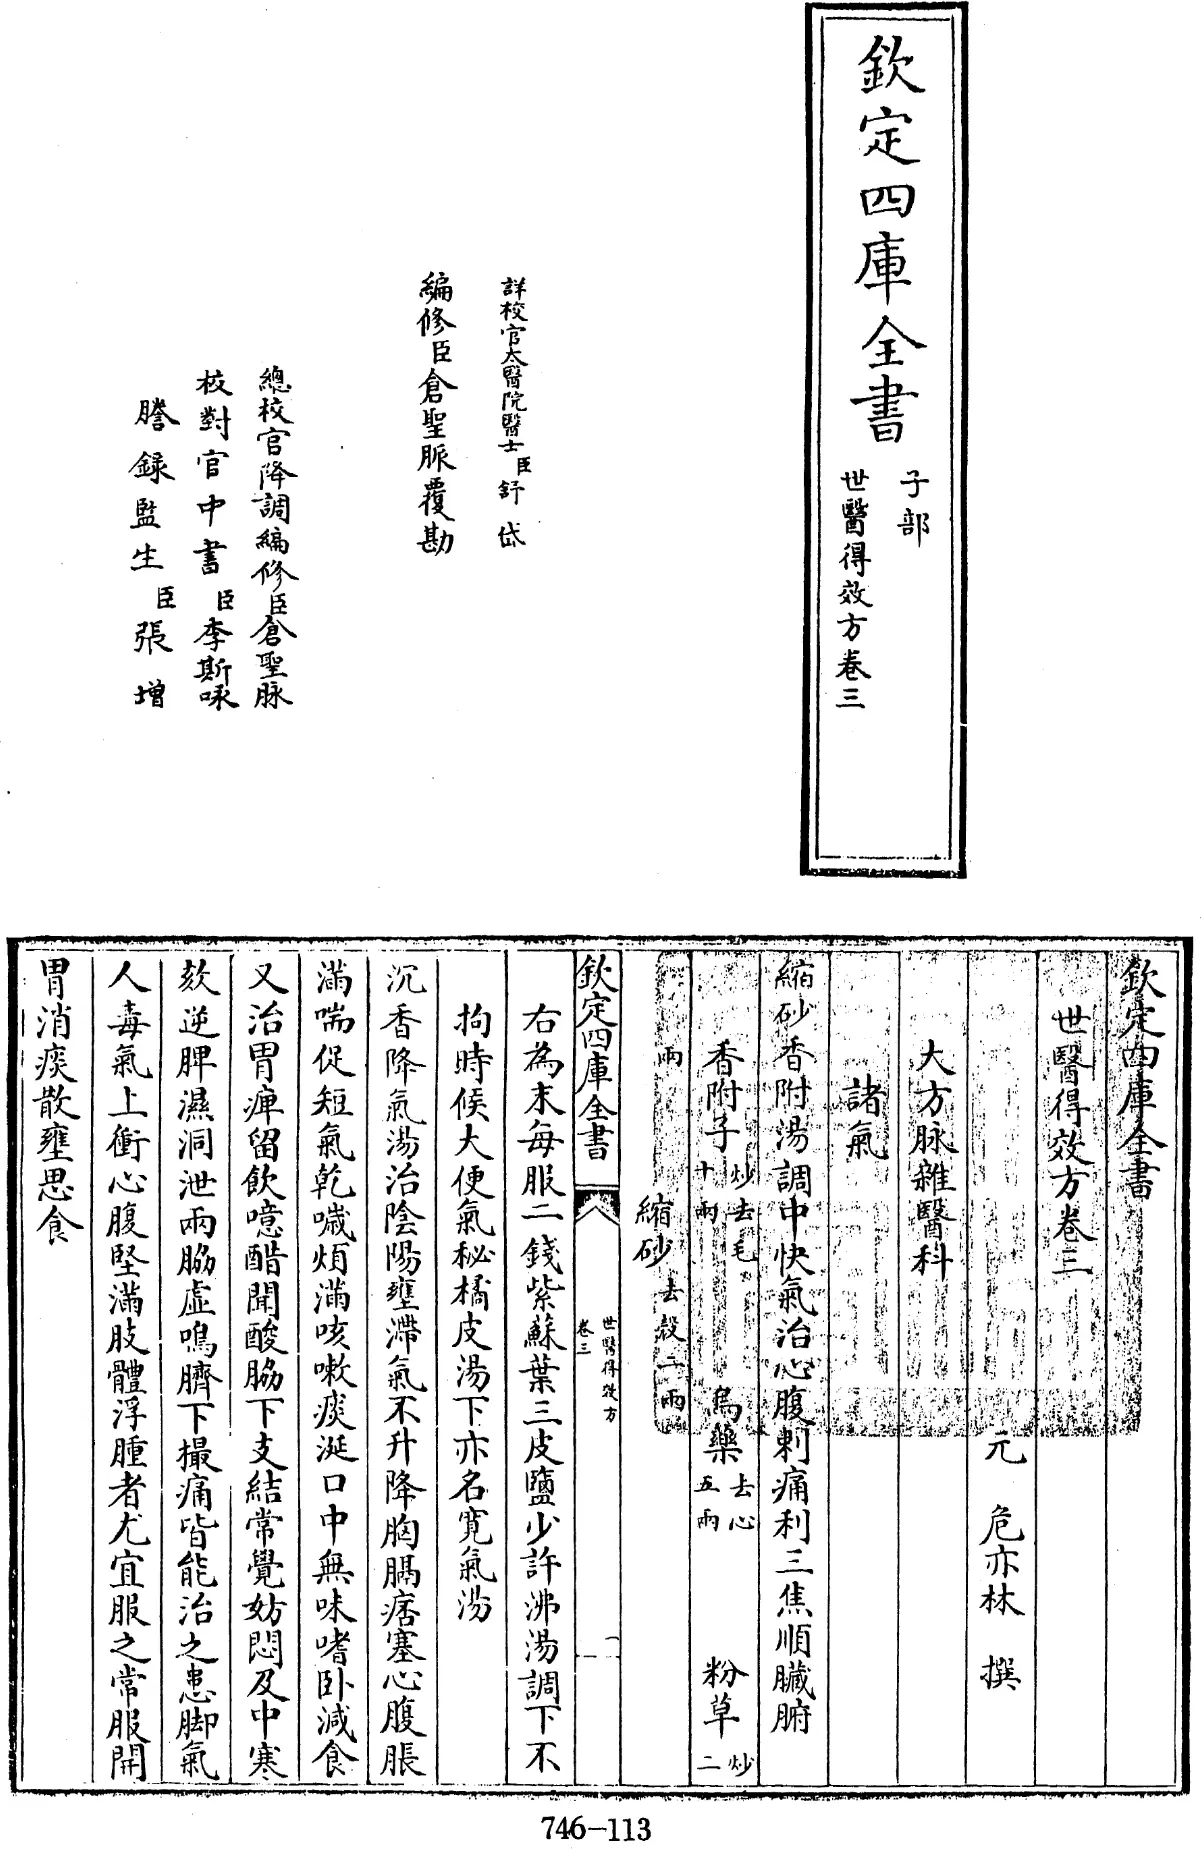 欽定四庫全書
子部
世醫得效方卷三
詳校官太醫院醫士臣舒岱
編修臣倉聖脈覆勘
總校官降調編修臣倉聖脉
校對官中書臣李斯咏
謄錄監生臣張增
欽定四庫全書
世醫得效方卷三
元 危亦林 撰
大方脉雜醫科
諸氣
縮砂香附湯調中快氣治心腹刺痛利三焦順臟腑
香附子炒去毛十兩 烏藥去心五兩 粉草炒二
兩 縮砂去殼二兩
欽定四庫全書
世醫得效方
卷三
一
右為末每服二錢紫蘇葉三皮鹽少許沸湯調下不
拘時候大便氣秘橘皮湯下亦名寬氣湯
沉香降氣湯治陰陽壅滯氣不升降胸膈痞塞心腹脹
滿喘促短氣乾噦煩滿咳嗽痰涎口中無味嗜卧減食
又治胃痺留飲噫醋聞酸脇下支結常覺妨悶及中寒
欬逆脾濕洞泄兩脇虛鳴臍下撮痛皆能治之患脚氣
人毒氣上衝心腹堅滿肢體浮腫者尤宜服之常服開
胃消痰散壅思食
746-113